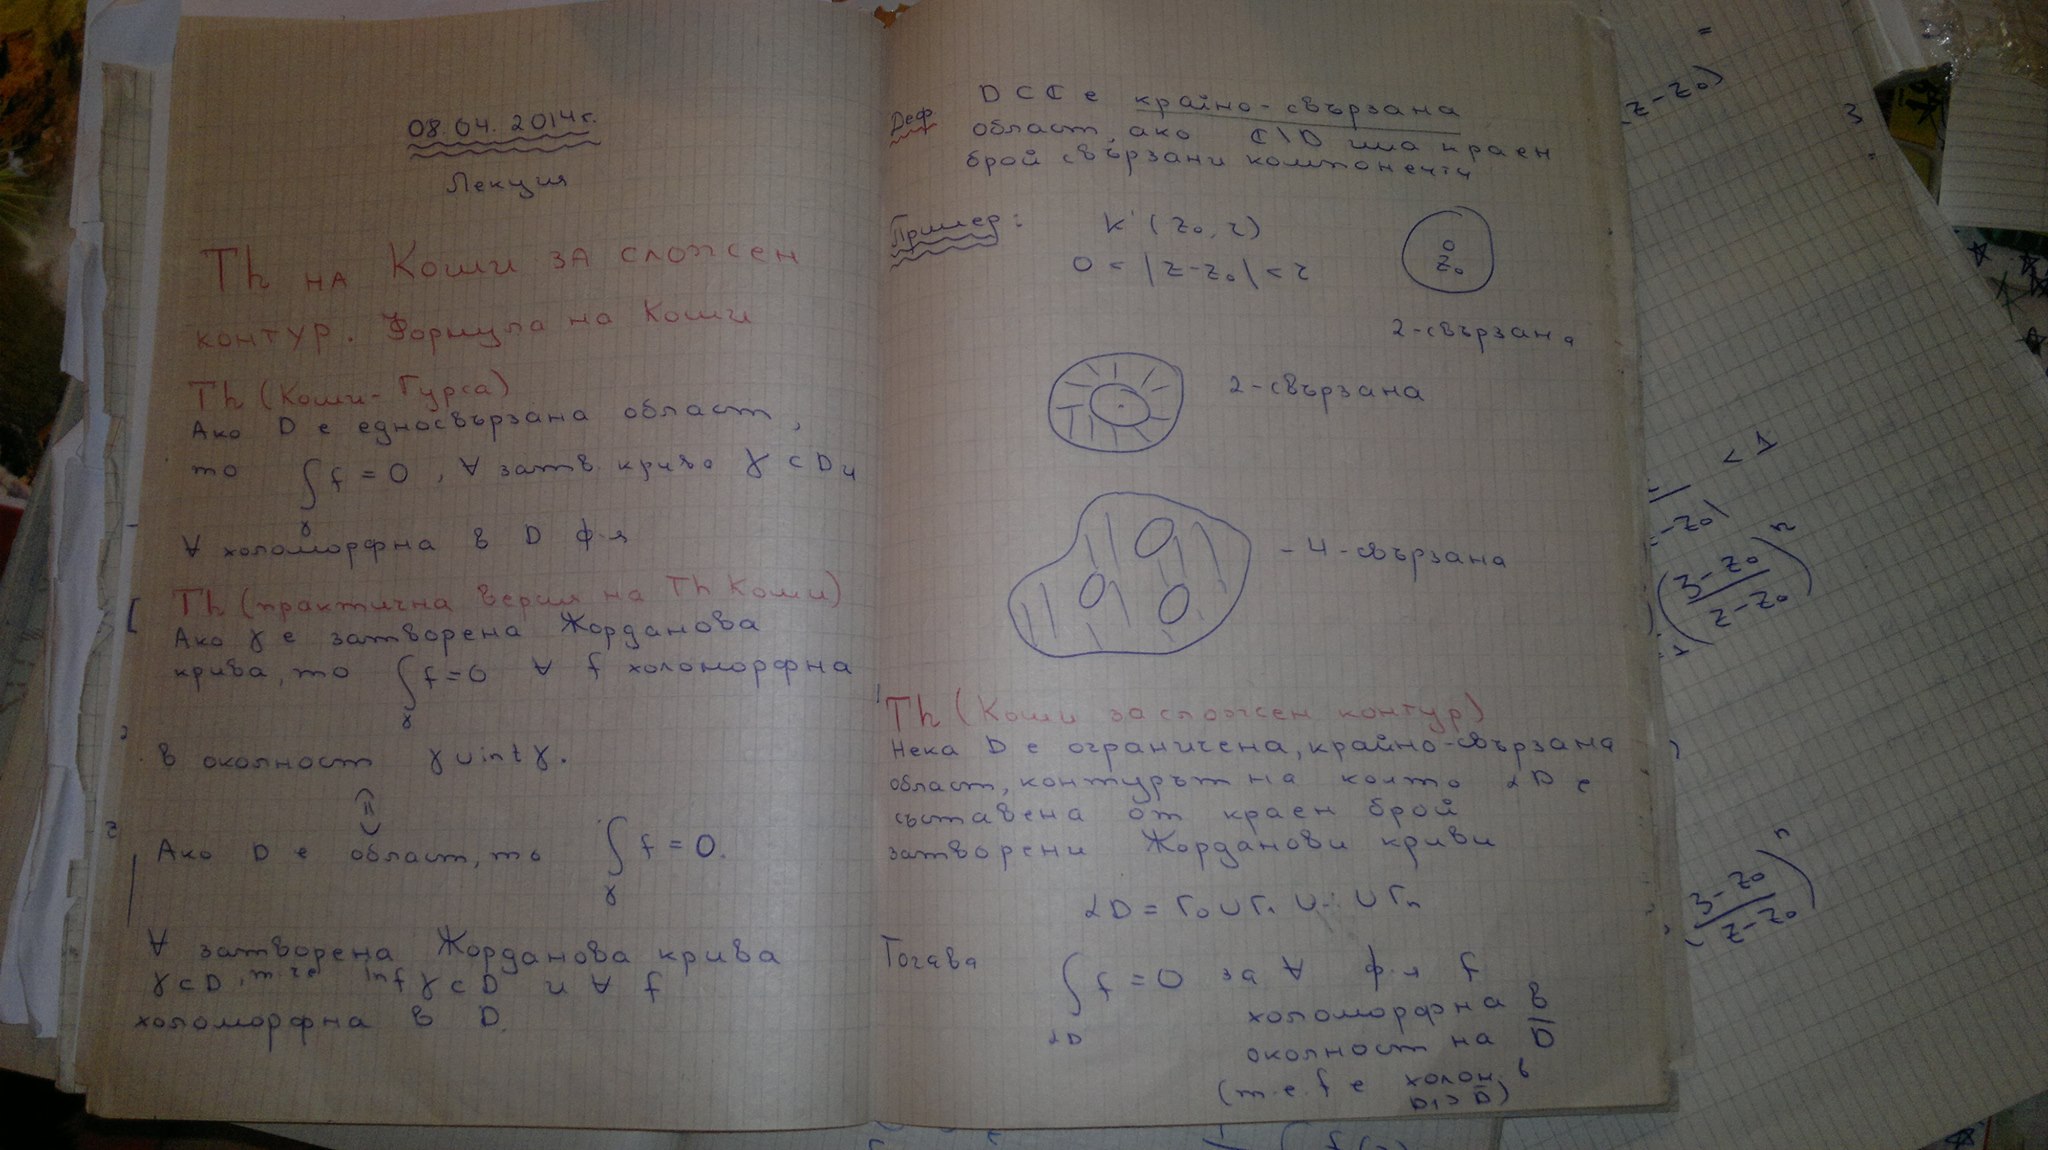 08.04.2014г.
Лекция
Th на Коши за сложен
контур. Формула на Коши
Th (Коши-Гурса)
Ако D е едносвързана област,
то ∫γ f = 0, ∀ затв. крива γ ⊂ D и
∀ холоморфна в D ф-я
Th (практична версия на Th Коши)
Ако γ е затворена Жорданова
крива, то ∫γ f = 0 ∀ f холоморфна
в околност γ ∪ int γ.
Ако D е област, то ∫γ f = 0.
∀ затворена Жорданова крива
γ ⊂ D, т.че inf γ ⊂ D и ∀ f
холоморфна в D.
Деф D ⊂ ℂ е крайно-свързана
област, ако ℂ\D има краен
брой свързани компоненти
Пример: K'(z₀, r)
0 < |z-z₀| < r
z₀
2-свързана
2-свързана
- 4-свързана
Th (Коши за сложен контур)
Нека D е ограничена, крайно-свързана
област, контурът на която ∂D е
съставена от краен брой
затворени Жорданови криви
∂D = Γ₀ ∪ Γ₁ ∪ … ∪ Γₙ
Тогава ∫∂D f = 0 за ∀ ф-я f
холоморфна в
околност на D̅
(т.е. f е холом. в
D₁ ⊃ D̅)
z-z₀)
3
< 1
-z₀)
(3-z₀/z-z₀)ⁿ
(3-z₀/z-z₀)ⁿ